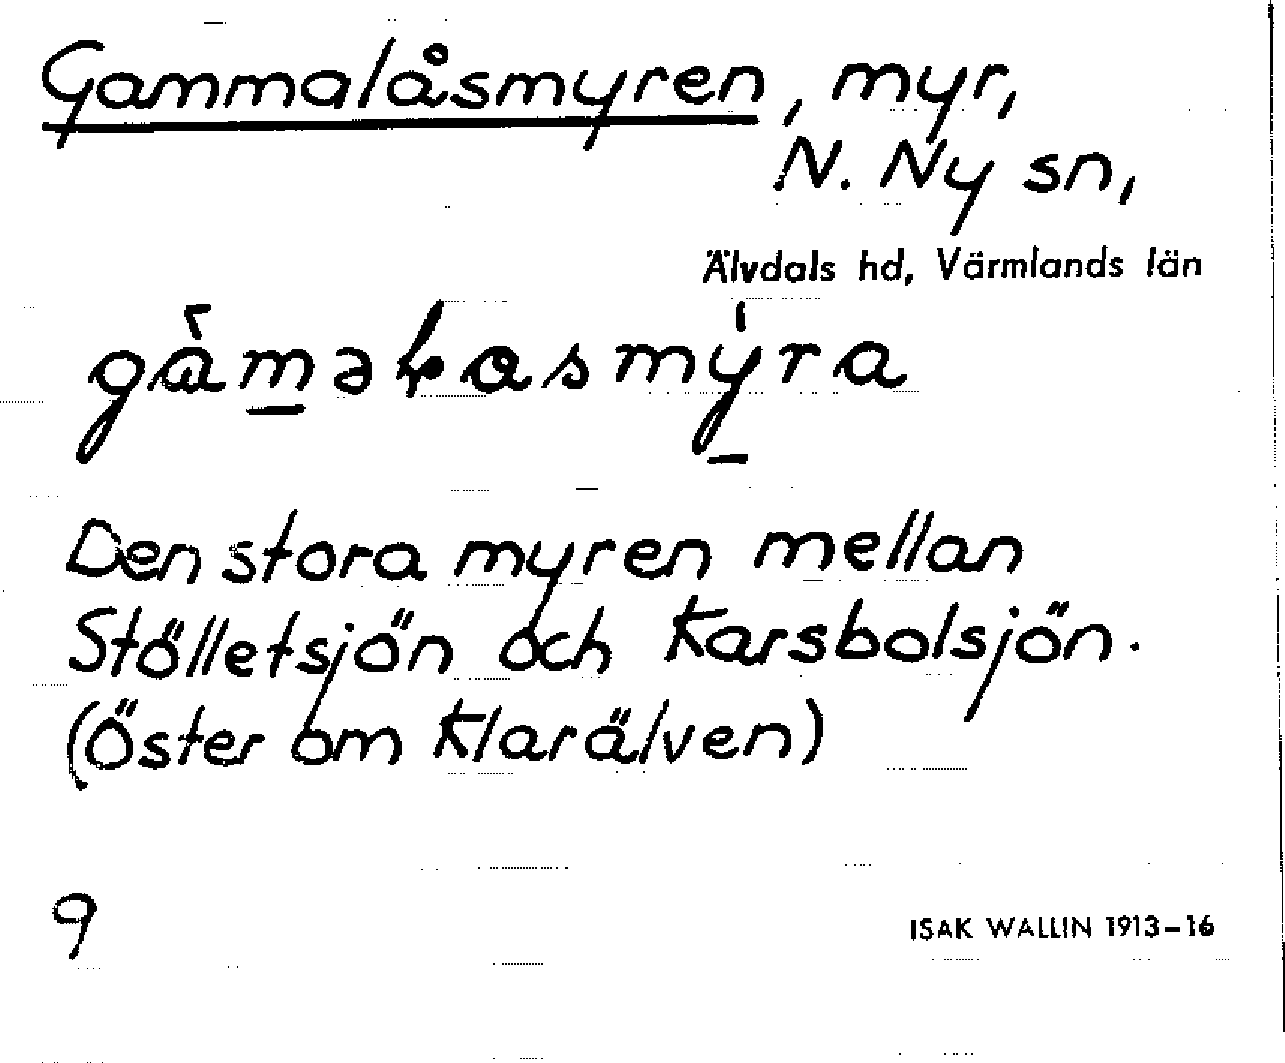 Gammalåsmyren, myr,
N. Ny sn,
Älvdals hd, Värmlands län
Den stora myren mellan
Stölletsjön och Karsbolsjön.
(Öster om Klarälven)
9
ISAK WALLIN 1913–16